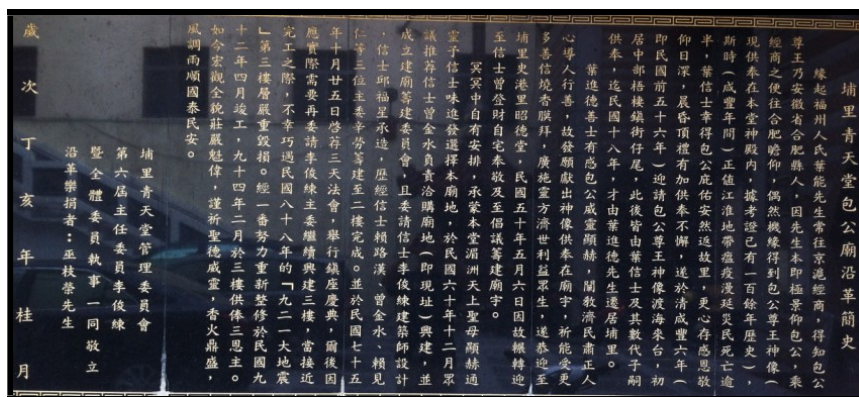 埔里青天堂包公廟沿革簡史
緣起福州人氏葉能先生常往京滬經商，得知包公
尊王乃安徽省合肥縣人，因先生本即極景仰包公，乘
經商之便往合肥瞻仰，偶然機緣得到包公尊王神像（
現供奉在本堂神殿內，據考證已有一百餘年歷史），
斯時（咸豐年間）正值江淮地帶瘟疫漫延災民死亡逾
半，葉信士幸得包公庇佑安然返故里，更心存感恩敬
仰日深，晨昏頂禮有加供奉不懈，遂於清咸豐六年（
即民國前五十六年）迎請包公尊王神像渡海來台，初
居中部梧棲鎮街仔尾，此後皆由葉信士及其數代子嗣
供奉，迄民國十八年，才由葉進德先生遷居埔里。
葉進德善士有感包公威靈顯赫，闡教濟民肅正人
心導人行善，故發願獻出神像供奉在廟宇，祈能受更
多善信境香膜拜，廣施靈方濟世利益眾生，遂恭迎至
埔里史港里昭德堂，民國五十年五月六日因故輾轉迎
至信士曾登財自宅奉敬及至倡議籌建廟宇。
冥冥中自有安排，承蒙本堂湄洲天上聖母顯赫通
靈子信士味進發選擇本廟地，於民國六十年十二月眾
議推荐信士曾金水負責洽購廟地（即現址）興建，並
成立建廟籌建委員會，且委請信士李俊練建築師設計
，信士邱福星承造，歷經信士賴路漢，曾金水，賴見
仁等三位主委辛勞籌建至二樓完成。並於民國七十五
年十月廿五日啓莋三天法會，舉行鎮座慶典，爾後因
應實際需要再委請李俊練主委繼續興建三樓，當接近
完工之際，不幸巧遇民國八十八年的「九二一大地震
」第三樓層嚴重毀損。經一番努力重新整修於民國九
十二年四月竣工，九十四年二月於三樓供俸三恩主。
如今宏觀全貌莊嚴魁偉，謹祈聖德威靈，香火鼎盛，
風調雨順國泰民安。
埔里青天堂管理委員會
第六屆主任委員李俊練
暨全體委員執事一同敬立
沿革樂捐者：巫枝榮先生
歲次丁亥年桂月